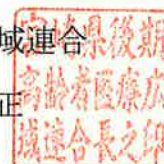 域連合
県後期
高齢者医療広
域連合長之印
正